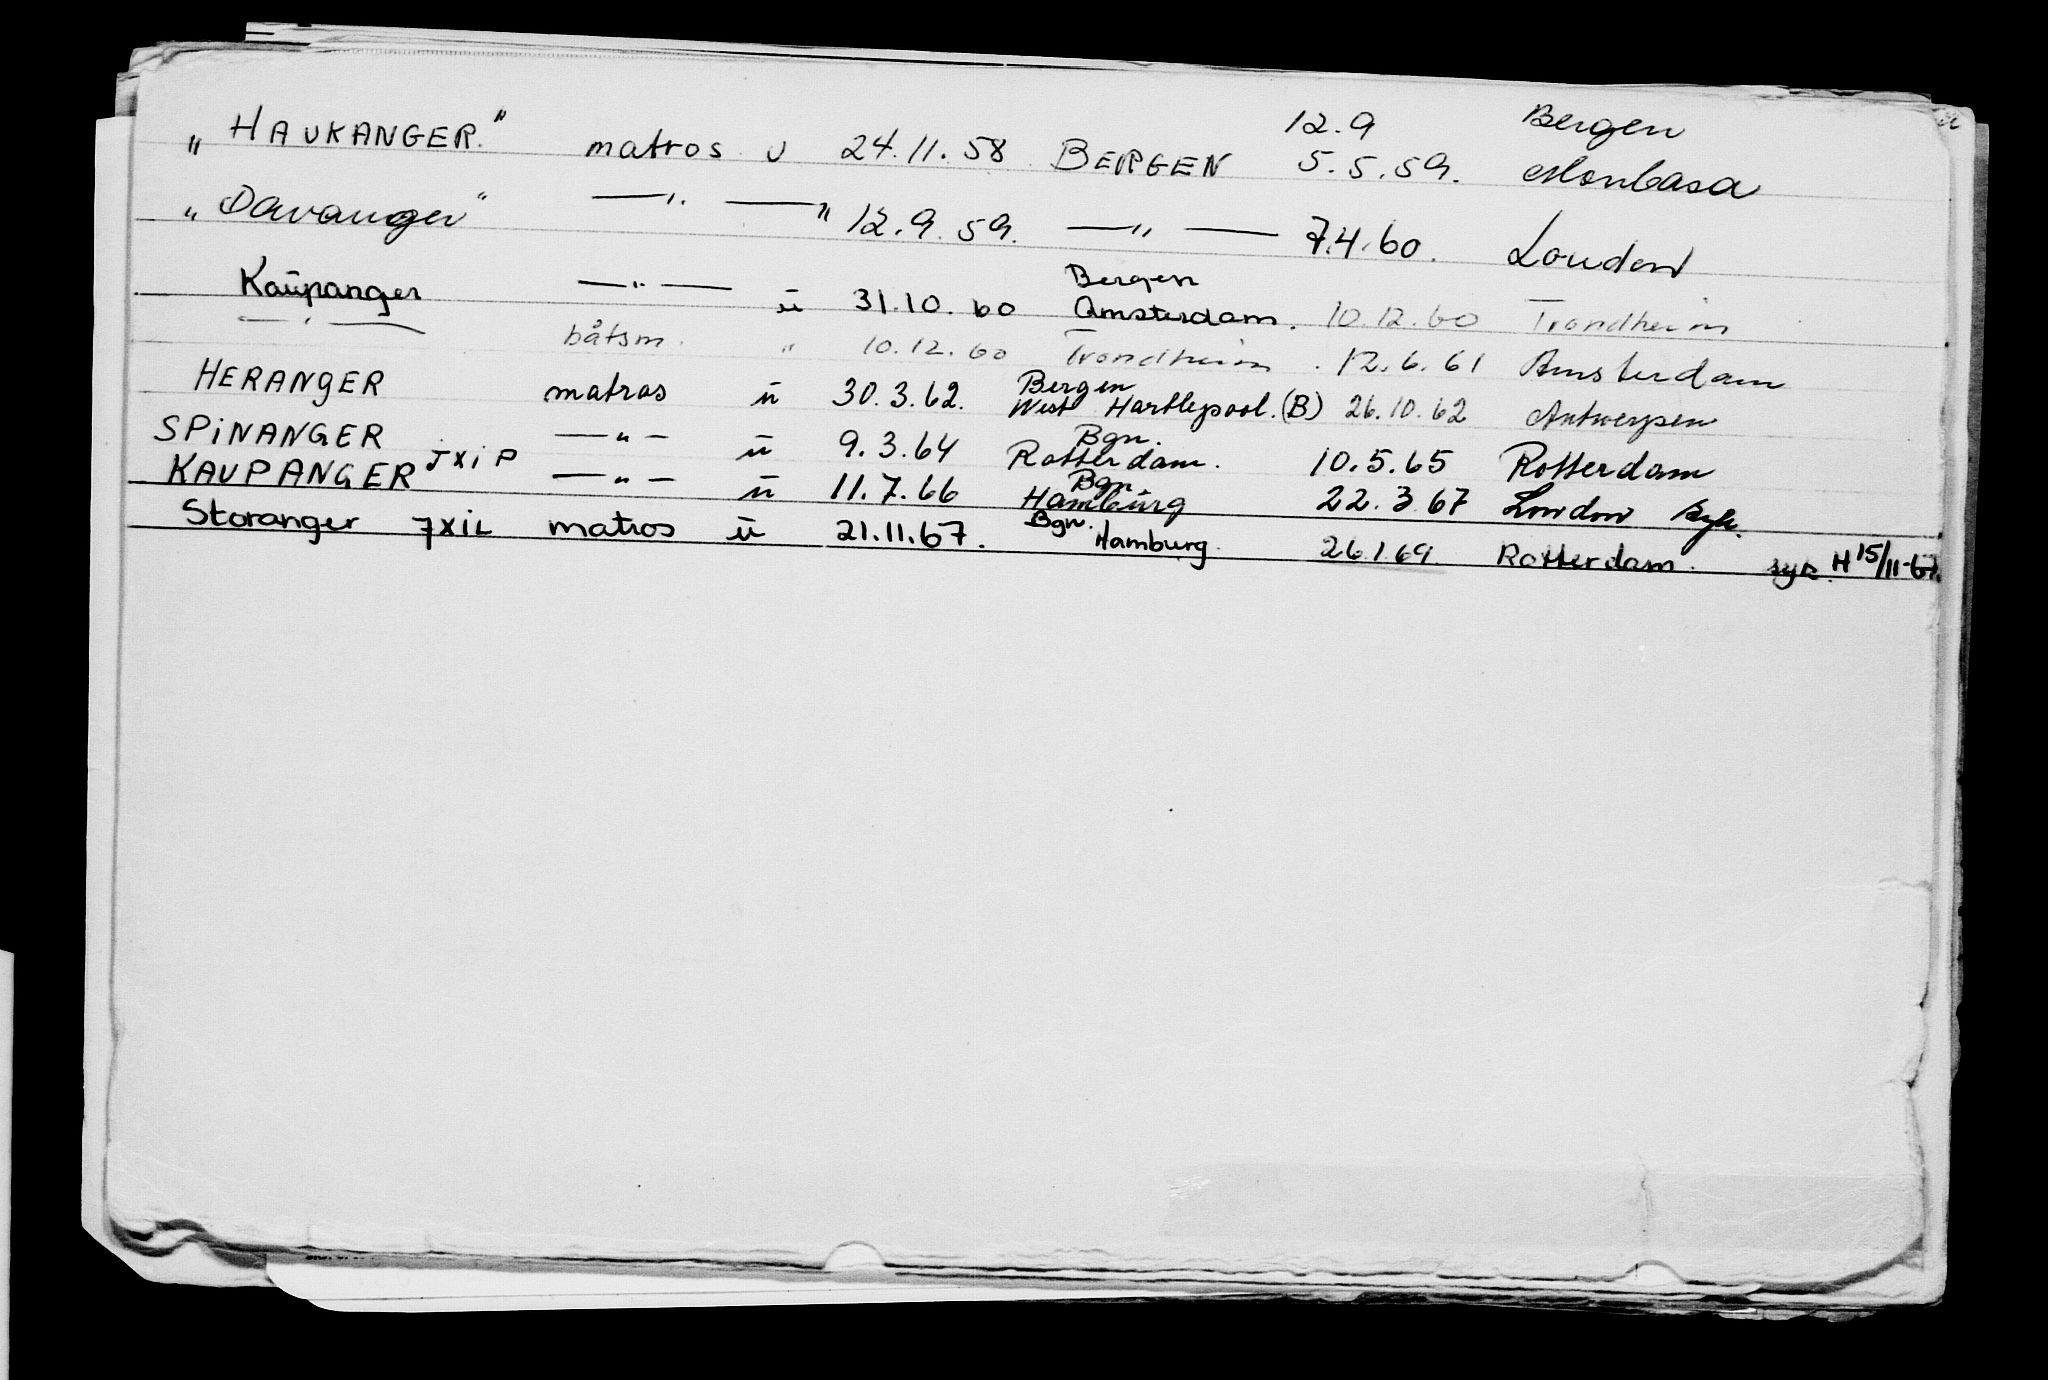 12.9 Bergen
„HAUKANGER." matros u 24.11.58 BERGEN 5.5.59. Monbasa
„Davanger" —"— " 12.9.59. —"— 7.4.60. London
Bergen
Kaupanger —"— u 31.10.60 Amsterdam. 10.12.60 Trondheim
—"— båtsm. " 10.12.60 Trondheim. 12.6.61 Amsterdam
Bergen
HERANGER matros u 30.3.62. West Hartlepool. (B) 26.10.62 Antwerpen
Bgn.
SPINANGER —"— u 9.3.64 Rotterdam. 10.5.65 Rotterdam
Bgn
KAUPANGER JXIP —"— u 11.7.66 Hamburg 22.3.67 London syk.
Bgn.
Storanger JXIL matros u 21.11.67. Hamburg. 26.1.69. Rotterdam. syk. H 15/11-67.